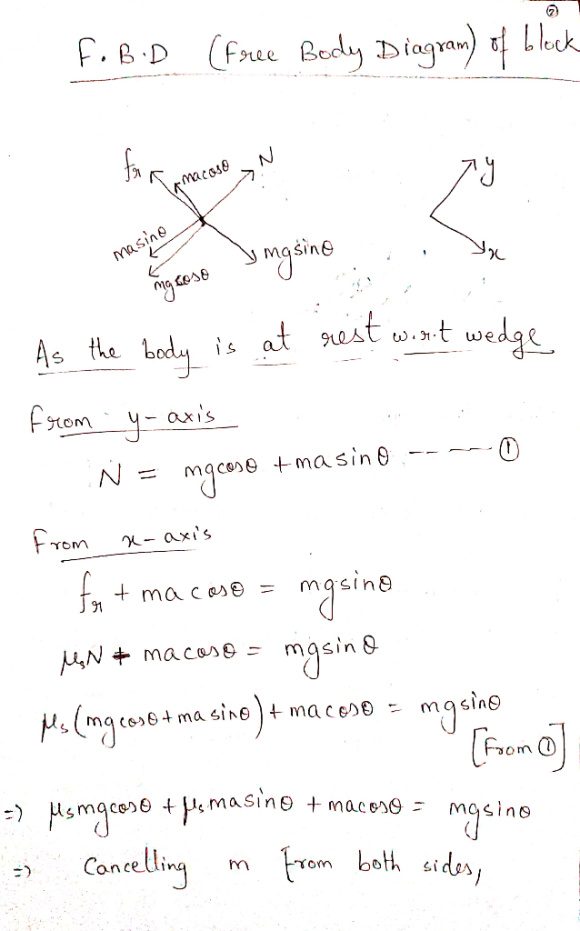 ②
F.B.D (Free Body Diagram) of block
fr macosθ N
y
masinθ
mgcosθ
mgsinθ
x
As the body is at rest w.r.t wedge
From y-axis
N = mgcosθ + masinθ ------ ①
From x-axis
fr + macosθ = mgsinθ
μsN + macosθ = mgsinθ
μs(mgcosθ + masinθ) + macosθ = mgsinθ
[From ①]
=> μsmgcosθ + μsmasinθ + macosθ = mgsinθ
=> Cancelling m from both sides,